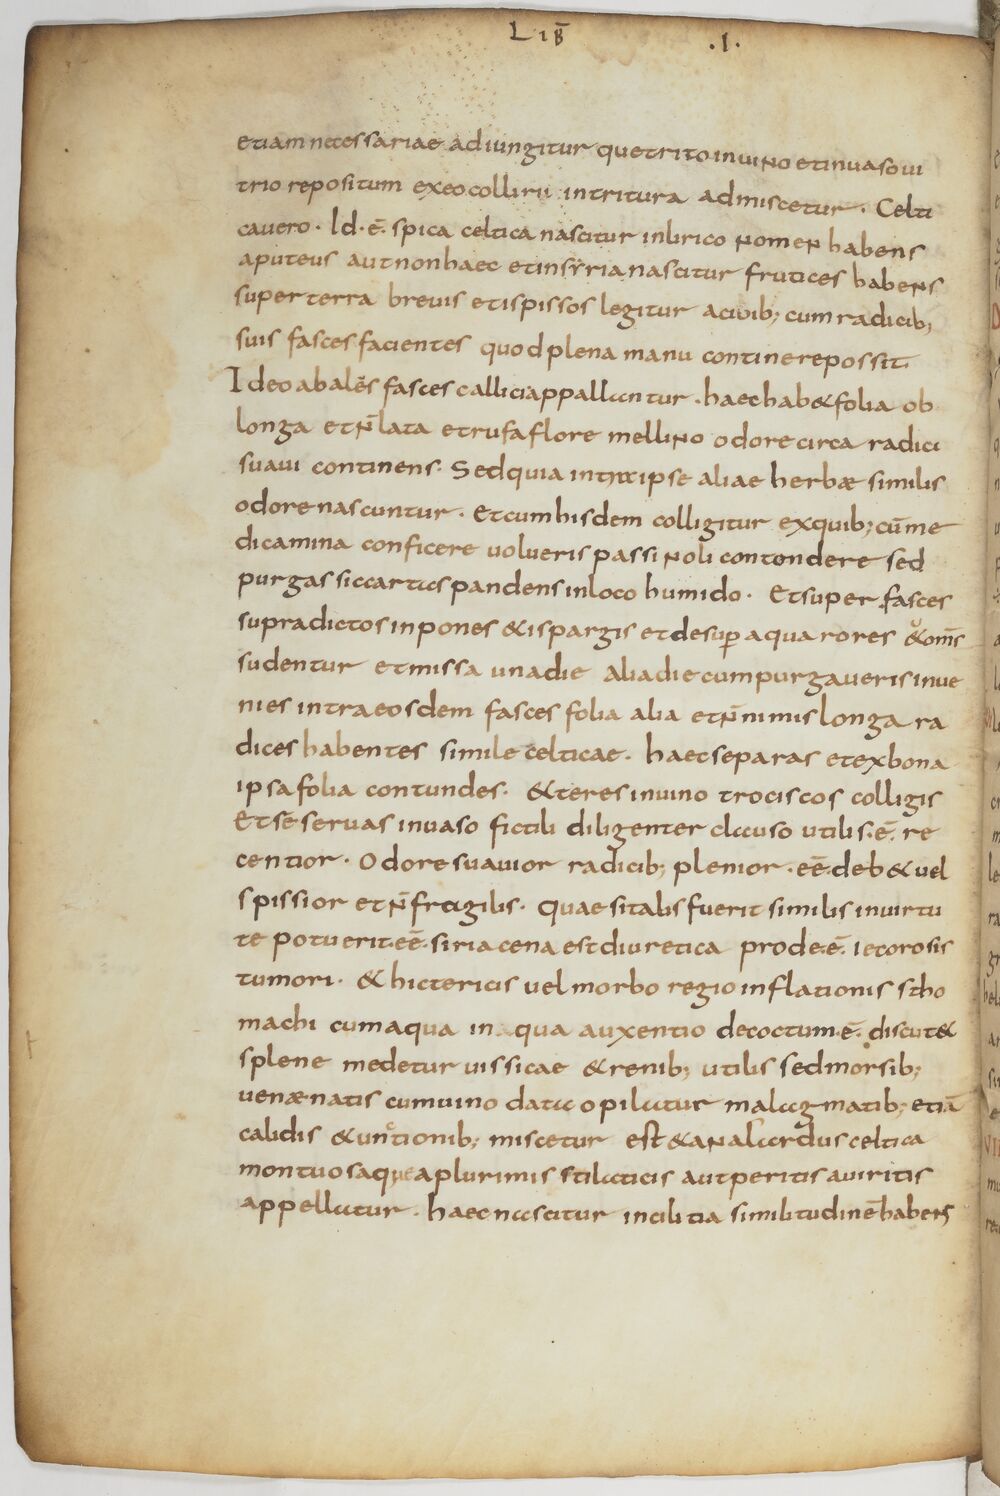 LIB̅ .I.
etiam necessariae adiungitur que trito in uino et in uaso ui
trio repositum ex eo collirii in tritura admiscetur. Celti
ca uero. Id. ē. spica celtica nascitur in lirico nomen habens
aputeus aut non haec et in syria nascitur frutices habens
super terra brevis et ispissos legitur acivib; cum radicib;
suis fasces facientes quod plena manu contine re possit.
Ideo abales fasces callici appallantur. haec hab& folia ob
longa et n̄ lata et rufa flore mellino odore circa radici
suaui continens. Sed quia ipse aliae herbæ similis
odore nascuntur. Et cum hisdem colligitur ex quib; cū me
dicamina conficere uolueris passi noli contondere sed
purgas siccartas pandens in loco humido. Et super fasces
supradictos inpones & ispargis et desup aqua rores & om̄s
sudentur et missa una die alia die cum purgaueris inue
nies intra eosdem fasces folia alia et n̄ nimis longa ra
dices habentes simile celticae. haec separas et ex bona
ipsa folia contundes. & teres in uino trociscos colligis
Et sē servas in uaso fictili diligenter clauso utilis. ē. re
centior. Odore suauior radicib; plenior. eē. deb& uel
spissior et n̄ fragilis. Quae si talis fuerit similis in uirtu
te potuerit. eē. siriacena est diuretica prode. ē. ietorosis
tumori. & hictericis uel morbo regio inflationis stho
machi cum aqua in qua auxentio decoctum. ē. discut&
splene medetur uissicae & renib; utilis sed morsib;
uenænatis cum uino data opilatur malagmatib; etiā
calidis & unctionib; miscetur est & a nalardus celtica
montuosa que a plurimis stilaticis aut peritis auiritis
appellatur. haec nascitur in cilitia similitudinē habens